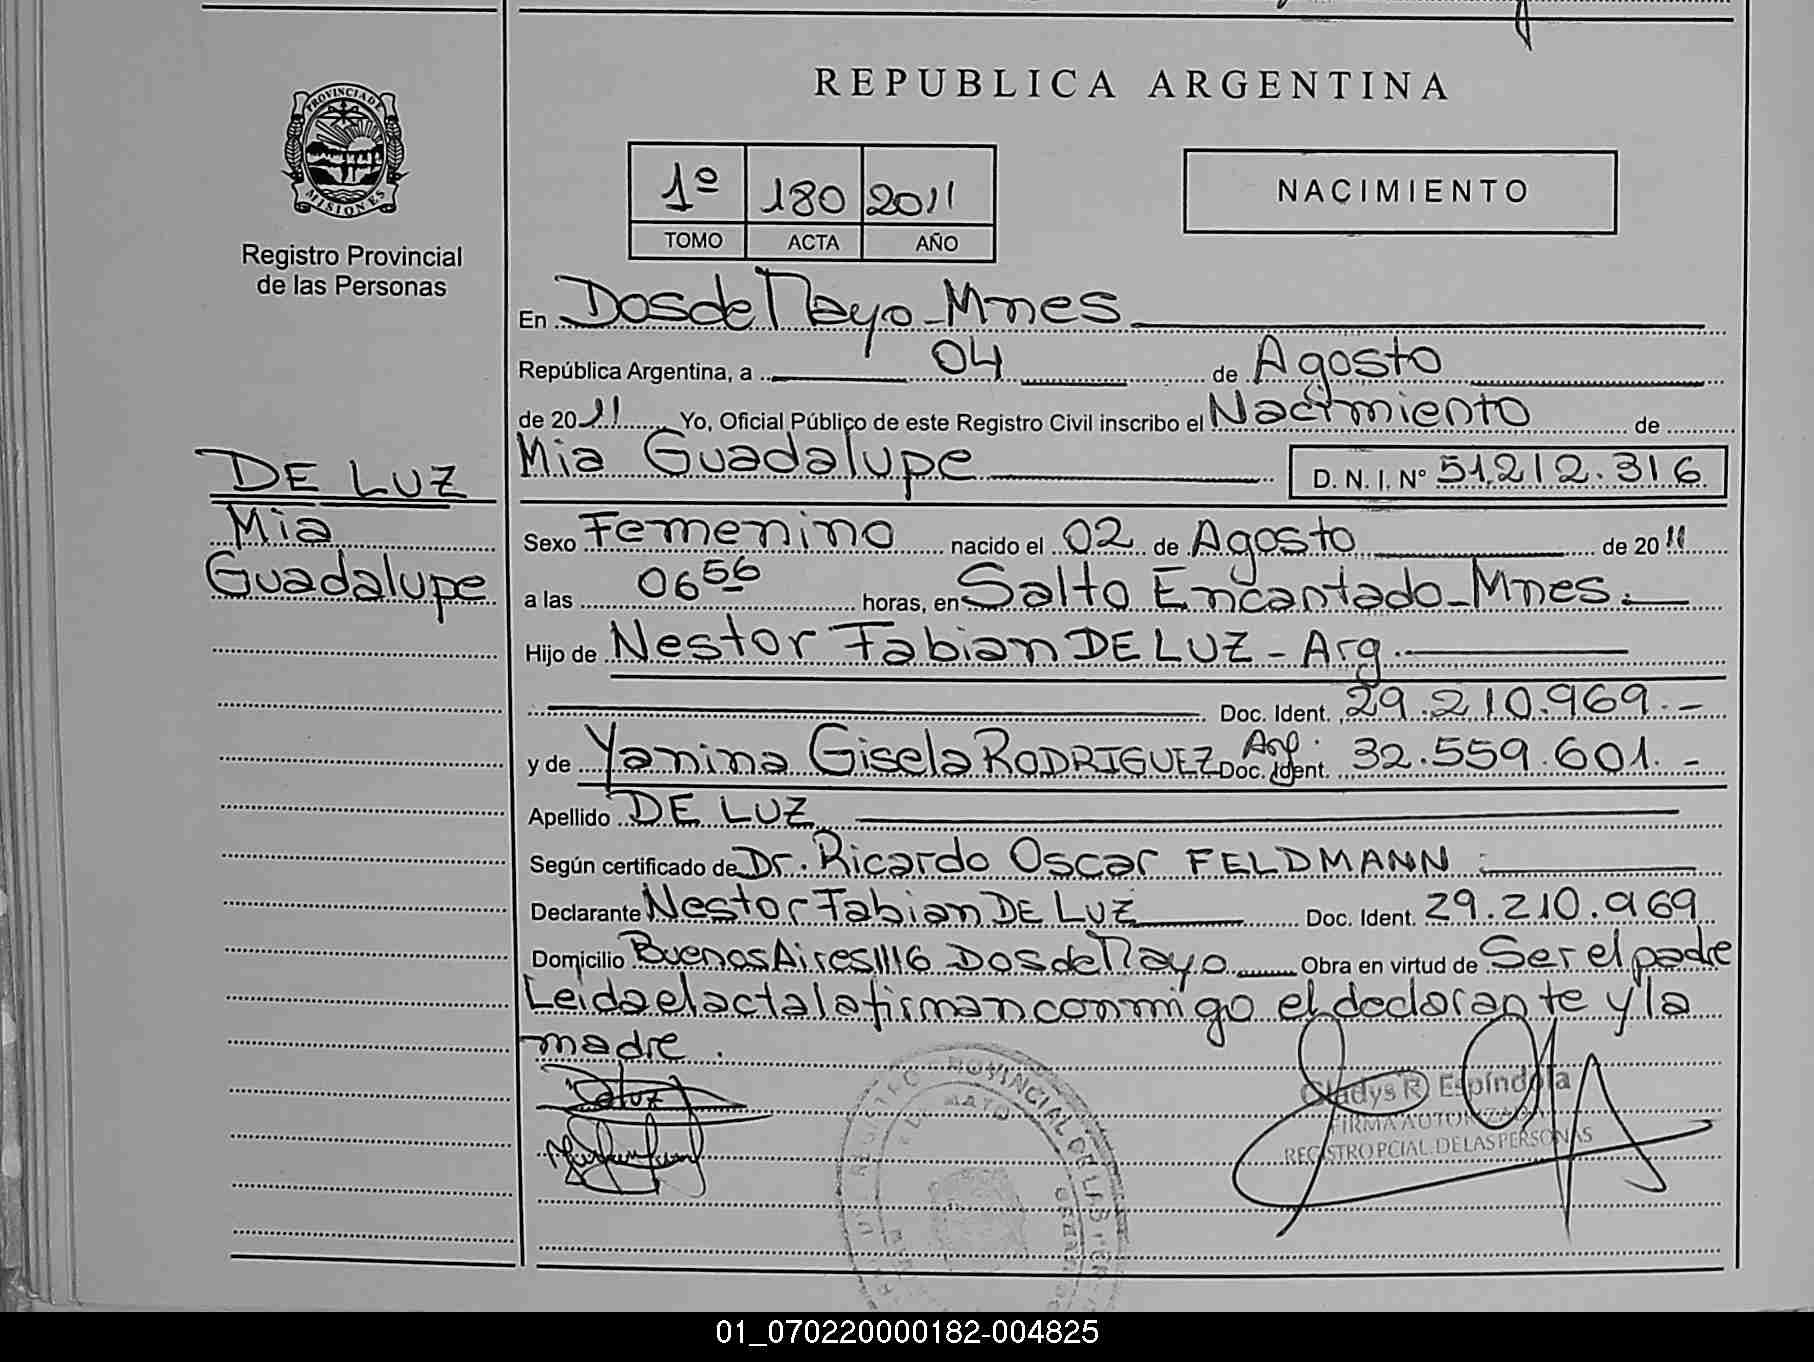 REPUBLICA ARGENTINA
PROVINCIA DE
MISIONES
Registro Provincial
de las Personas
1º 180 2011
TOMO ACTA AÑO
NACIMIENTO
En Dos de Mayo - Mnes
República Argentina, a 04 de Agosto
de 2011 Yo, Oficial Público de este Registro Civil inscribo el Nacimiento de
Mia Guadalupe D. N. I. Nº 51.212.316
DE LUZ
Mia
Guadalupe
Sexo Femenino nacido el 02 de Agosto de 2011
a las 06 56 horas, en Salto Encantado - Mnes.
Hijo de Nestor Fabian DE LUZ - Arg.
Doc. Ident. 29.210.969.-
y de Yanina Gisela RODRIGUEZ Arg. Doc. Ident. 32.559.601.-
Apellido DE LUZ
Según certificado de Dr. Ricardo Oscar FELDMANN
Declarante Nestor Fabian DE LUZ Doc. Ident. 29.210.969
Domicilio Buenos Aires 1116 Dos de Mayo Obra en virtud de Ser el padre
Leida el acta la firman conmigo el declarante y la
madre.
Deluz
REGISTRO PROVINCIAL DE LAS
DE MAYO
Gladys R. Espíndola
FIRMA AUTORIZADA
REGISTRO PCIAL. DE LAS PERSONAS
01_070220000182-004825